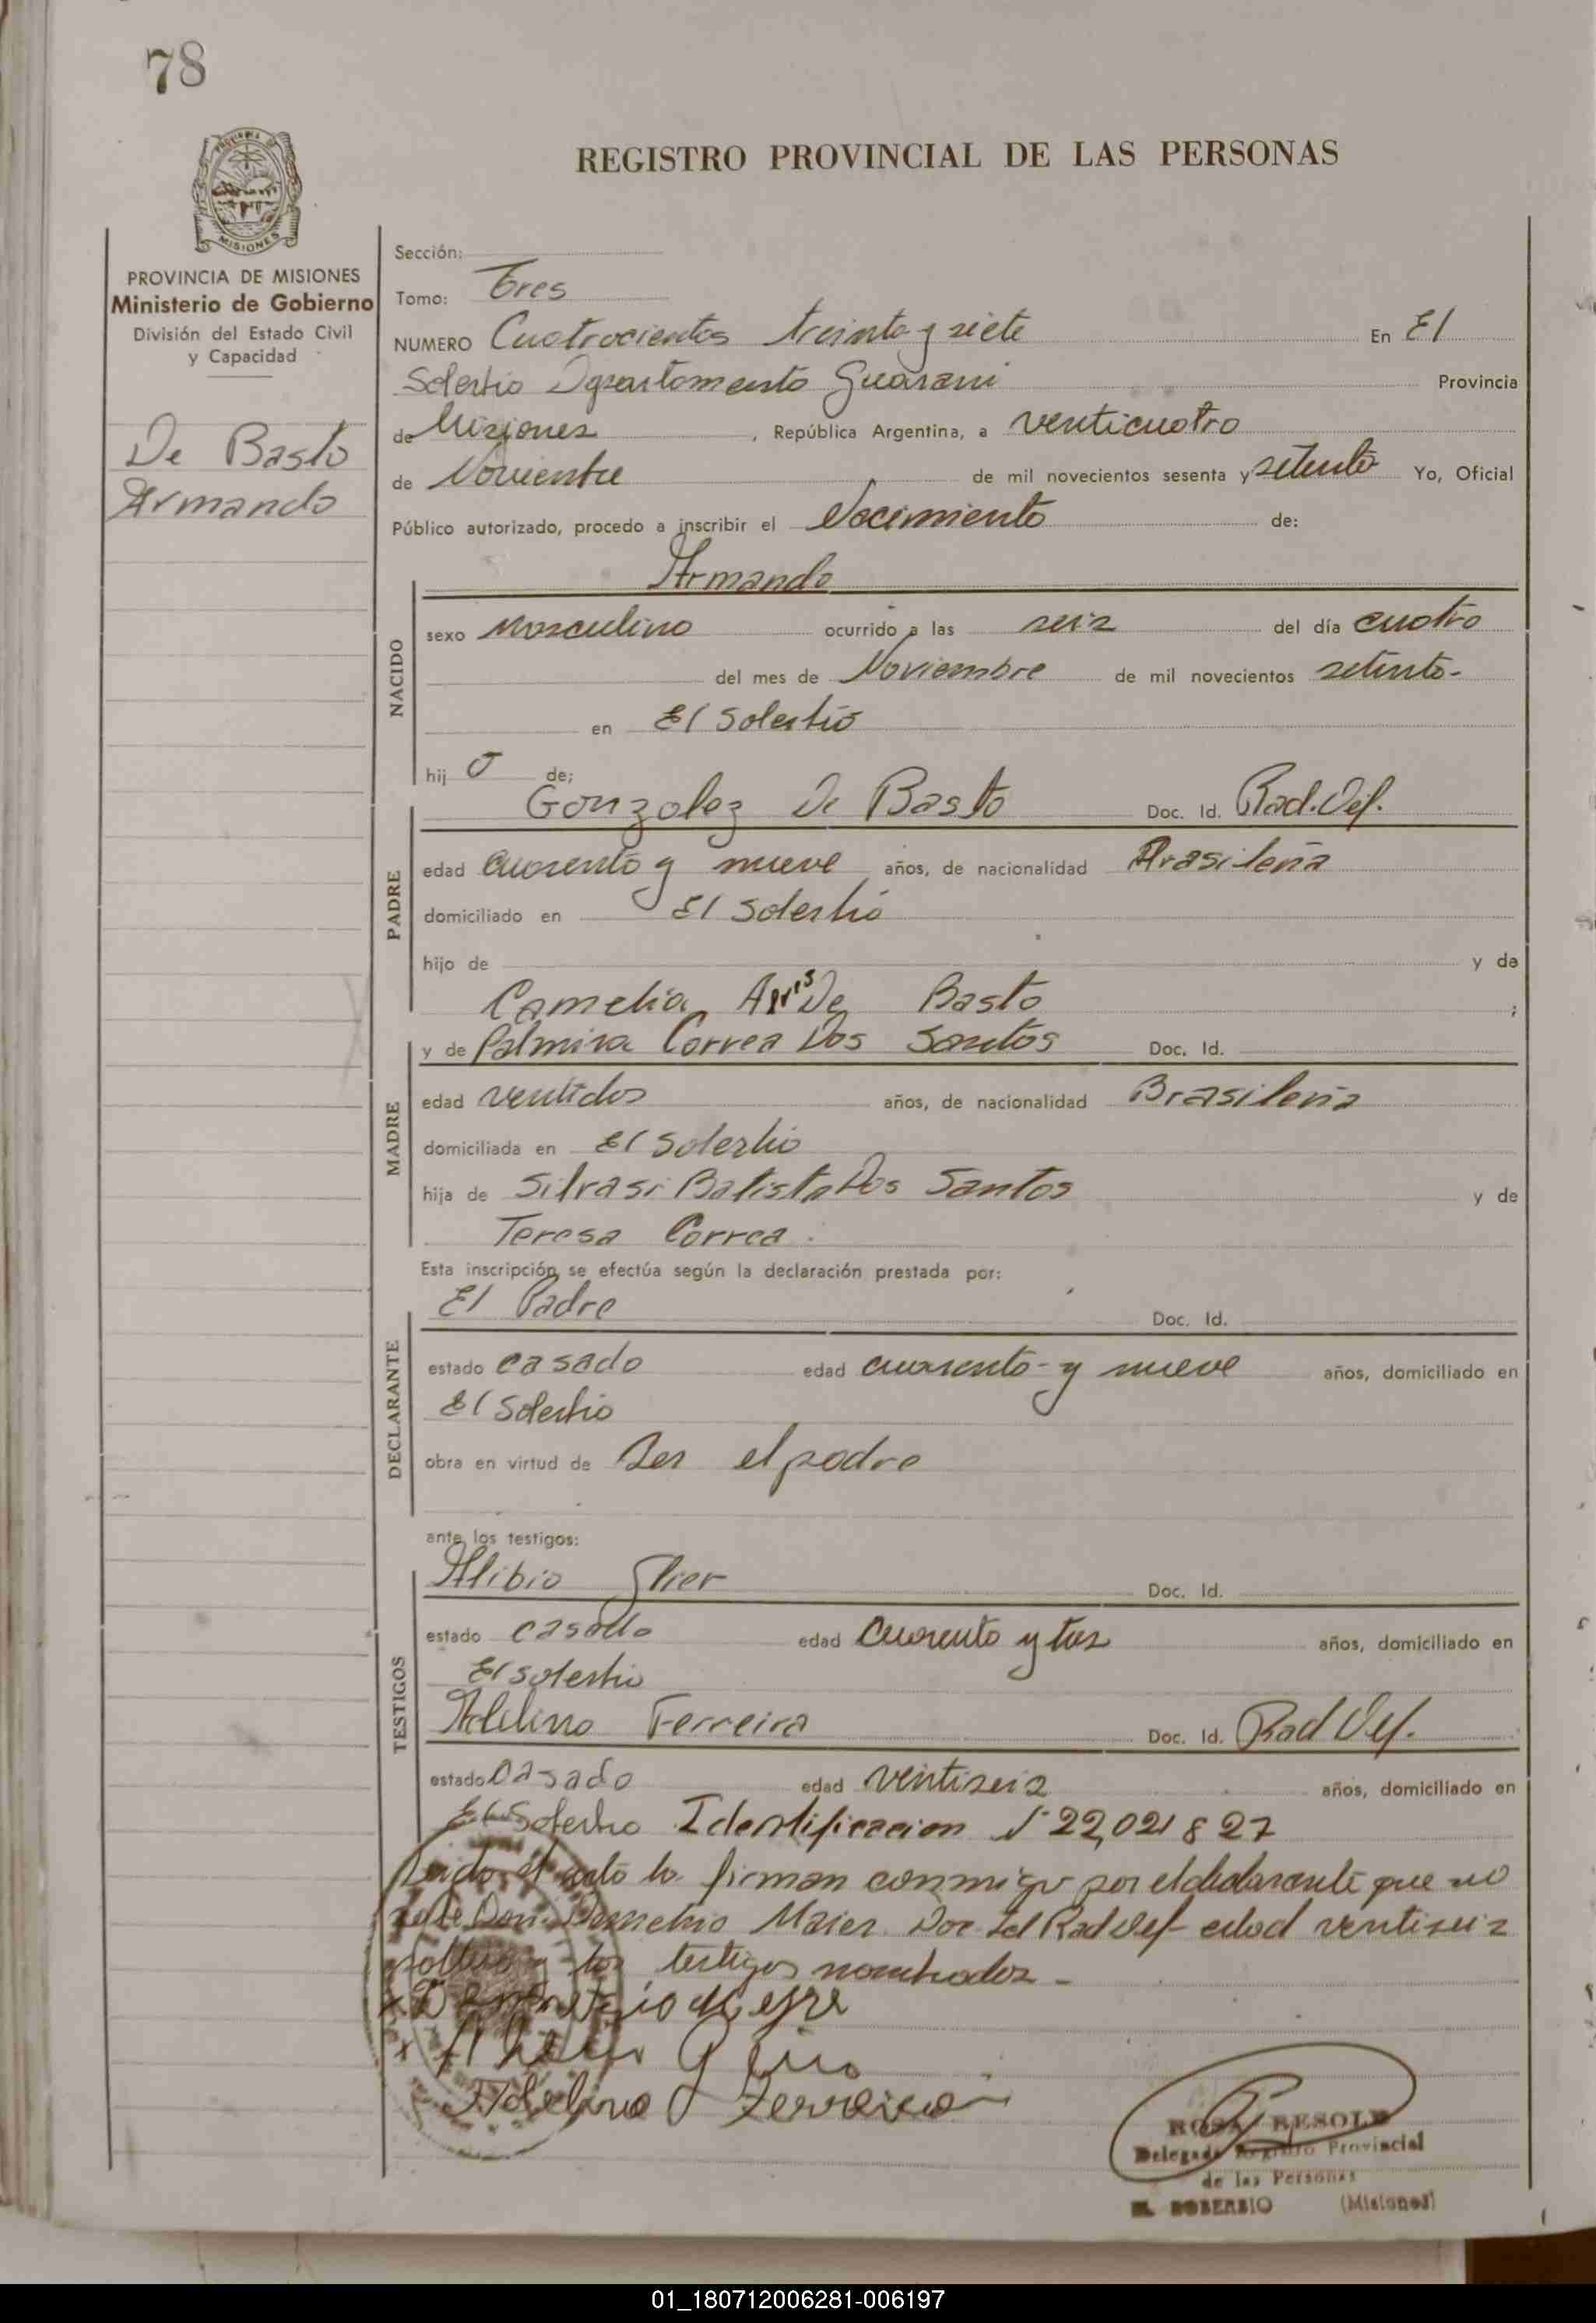 78
REGISTRO PROVINCIAL DE LAS PERSONAS
MISIONES
PROVINCIA DE MISIONES
Ministerio de Gobierno
División del Estado Civil
y Capacidad
De Basto
Armando
Sección:
Tomo: Tres
NUMERO Cuatrocientos treinta y siete En El
Soberbio Departamento Guarani Provincia
de Misiones, República Argentina, a venticuatro
de Noviembre de mil novecientos sesenta y setenta Yo, Oficial
Público autorizado, procedo a inscribir el Nacimiento de:
NACIDO
Armando
sexo Masculino ocurrido a las seis del día cuatro
del mes de Noviembre de mil novecientos setenta-
en El Soberbio
hij o de;
PADRE
Gonzalez De Basto Doc. Id. Rad. Def.
edad cuarenta y nueve años, de nacionalidad Brasileña
domiciliado en El Soberbio
hijo de y de
Camelia De Basto ;
MADRE
y de Palmira Correa Dos Santos Doc. Id.
edad ventidos años, de nacionalidad Brasileña
domiciliada en El Soberbio
hija de Silrasi Batista Dos Santos y de
Teresa Correa.
Esta inscripción se efectúa según la declaración prestada por:
DECLARANTE
El Padre Doc. Id.
estado casado edad cuarenta-y nueve años, domiciliado en
El Soberbio
obra en virtud de Ser el padre
ante los testigos:
TESTIGOS
Alibio Glier Doc. Id.
estado casado edad cuarenta y tres años, domiciliado en
El Soberbio
Adelino Ferreira Doc. Id. Rad Def.
estado Casado edad ventiseis años, domiciliado en
El Soberbio Identificacion N° 22,021827
Leido el acta la firman conmigo por el declarante que no
sabe Don Demetrio Maier Doc Id Rad Def- edad ventiseis
soltero y los testigos nombrados-
Adelino Ferreira
ROSA RESOLE
Delegada Registro Provincial
de las Personas
EL SOBERBIO (Misiones)
01_180712006281-006197